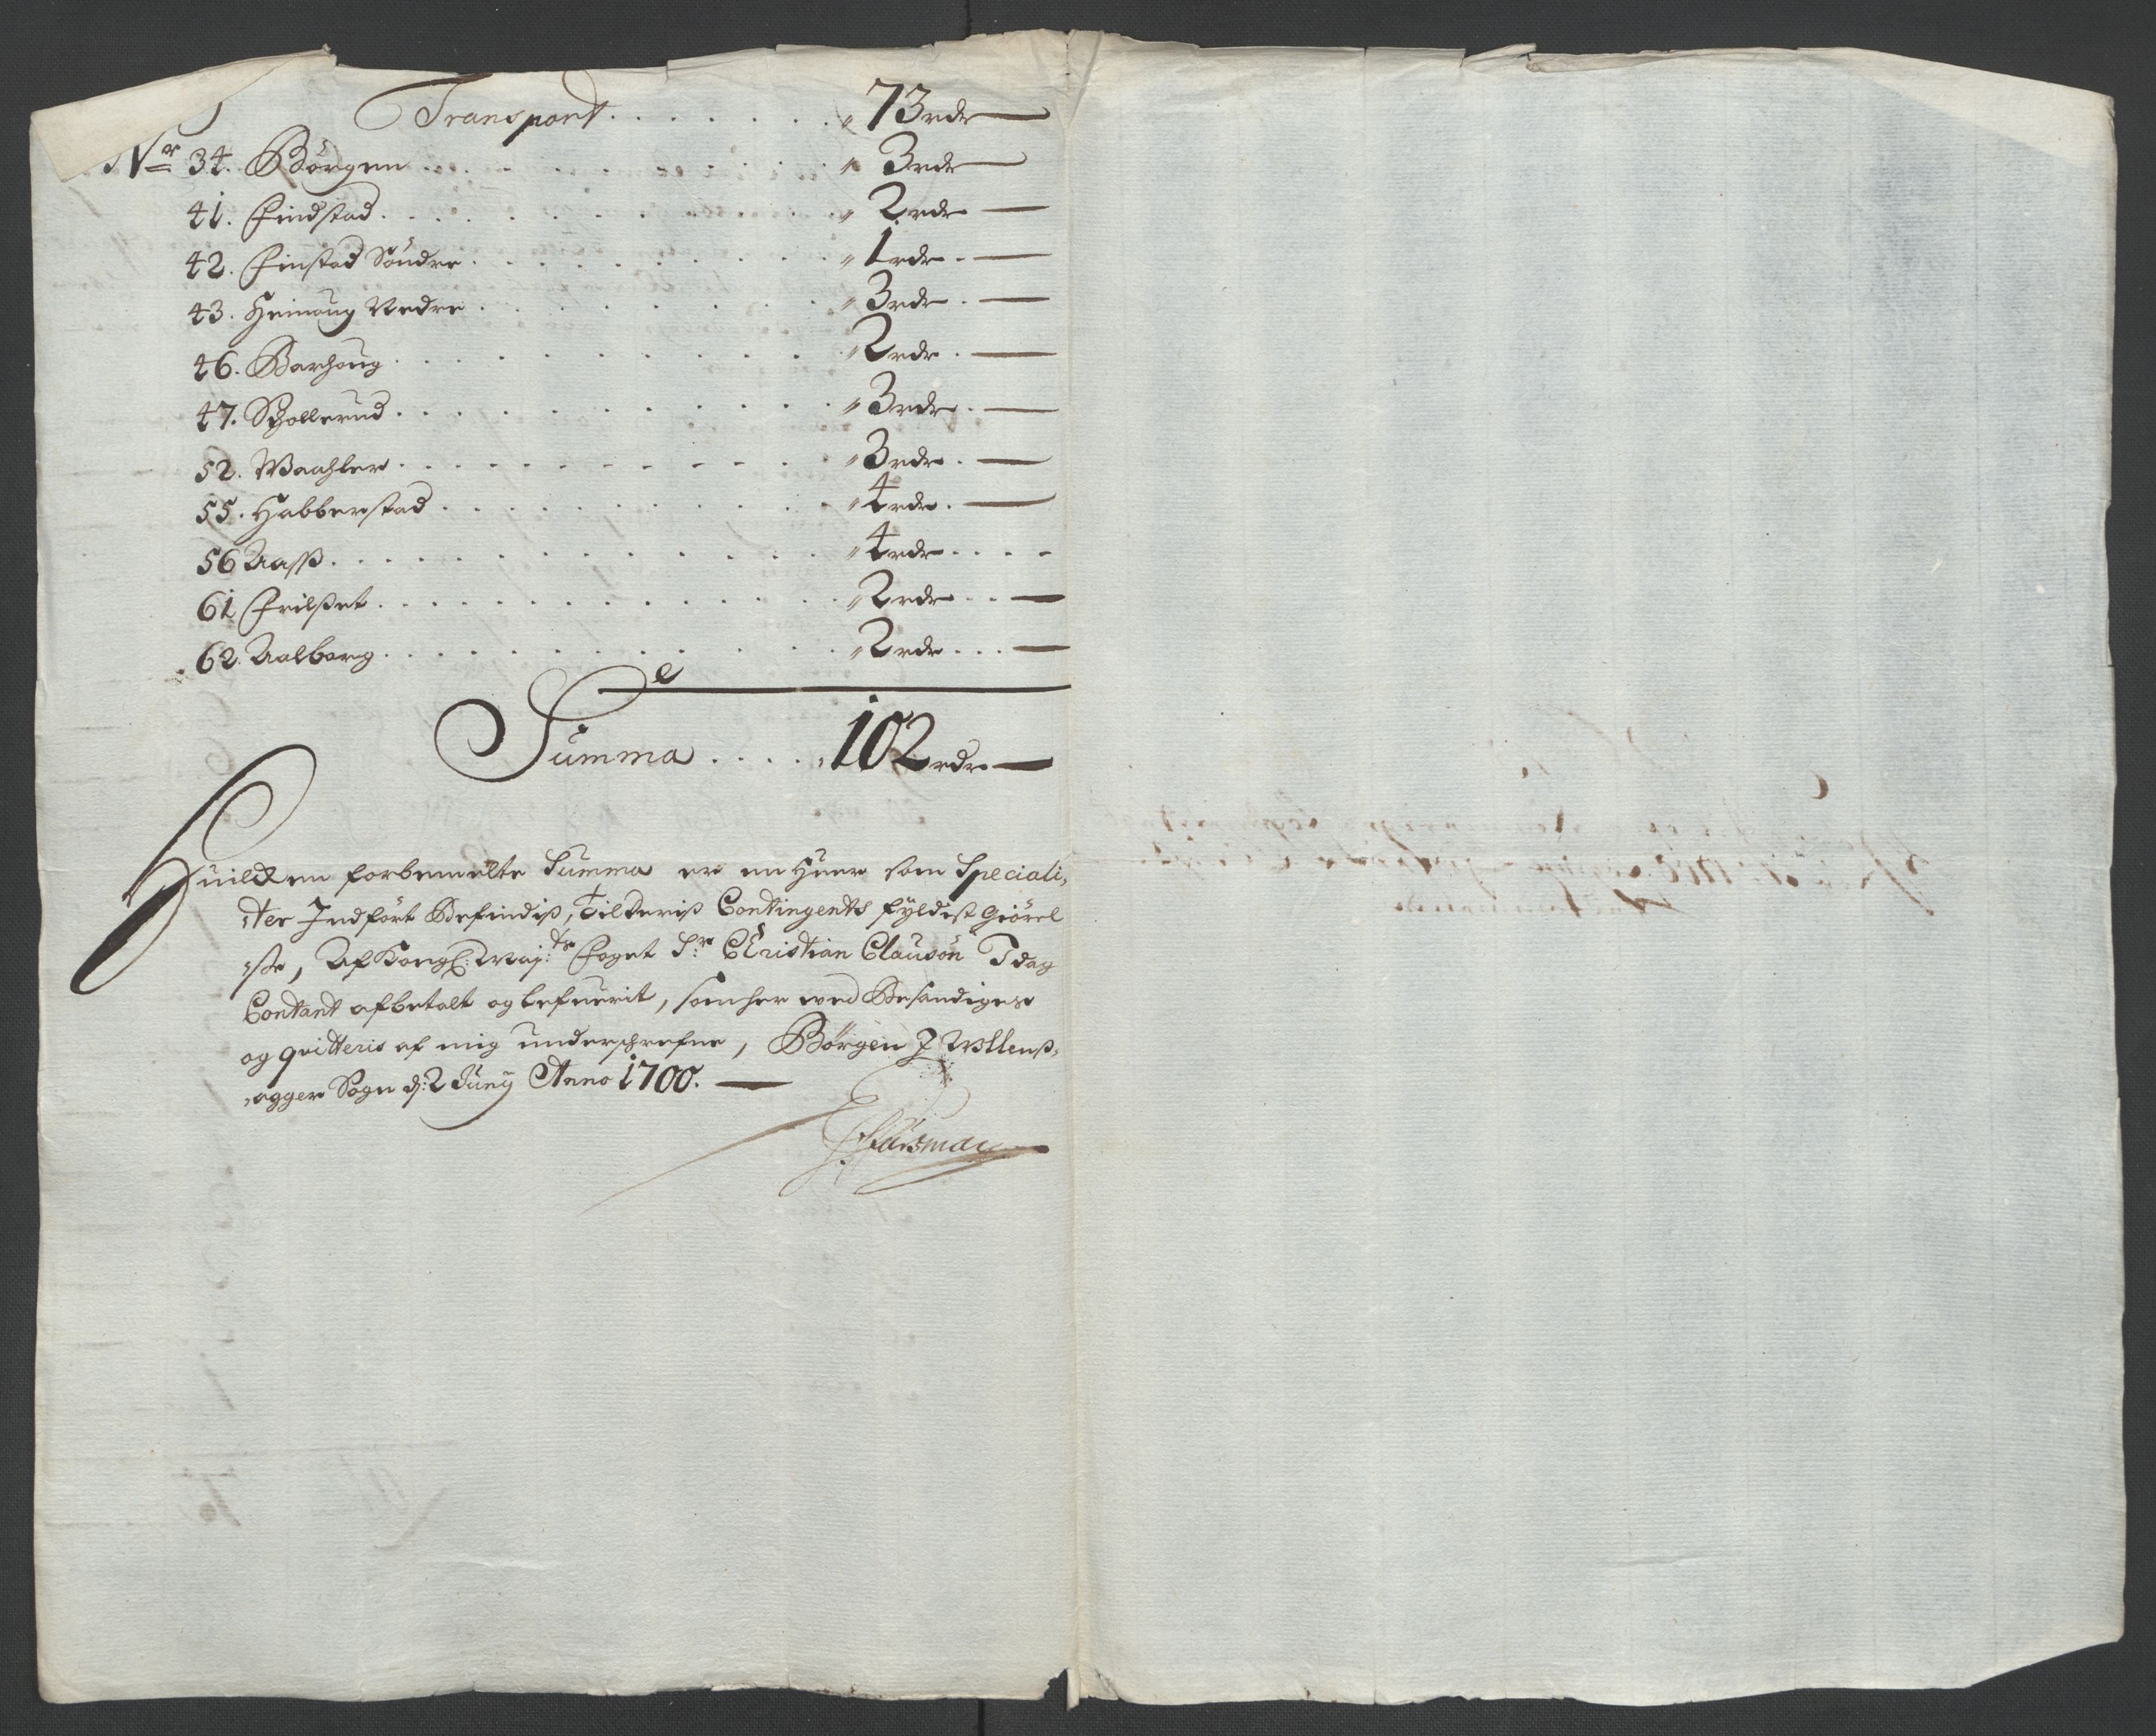 Transport . . . . . . . . 73 rdr
Nr 34. Börgen . . . . . . . . 3 rdr
41. Findstad . . . . . . . . 2 rdr
42. Finstad Söndre . . . . . . . . 1 rdr
43. Heinoug Nedre . . . . . . . . 3 rdr
46. Barhoug . . . . . . . . 2 rdr
47. Schollerud . . . . . . . . 3 rdr
52. Waahler . . . . . . . . 3 rdr
55. Habberstad . . . . . . . . 4 rdr
56 Aass . . . . . . . . 4 rdr
61 Frilset . . . . . . . . 2 rdr
62. Aalborg . . . . . . . . 2 rdr
Summa . . . . 102 rdr
Huilcken forbemelte Summa er en Huer som Speciali,
,ter Indfört Befindis, til deris Contingents fyldist Giörel
,sse, Af Kongl: Maj:ts Foget Sr: Christian Clausön I dag
Contant afbetalt og lefuerit, som her ved Bestandiges
og qvitteris af mig underschrefne, Börgen J Ullens,
,agger Sogn d: 2 Junij Anno 1700.